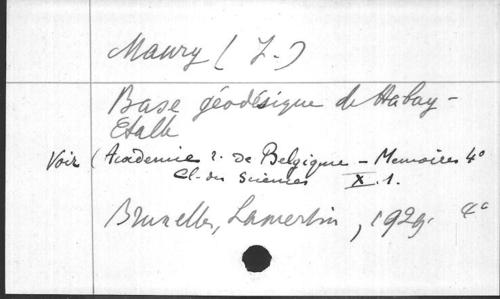 Maury (J.)
Base géodésique de Habay-
Etalle
Voir (Académie r. de Belgique - Memoires 4°
Cl. des Sciences X.1.
Bruxelles, Lamertin, 1929. 4°